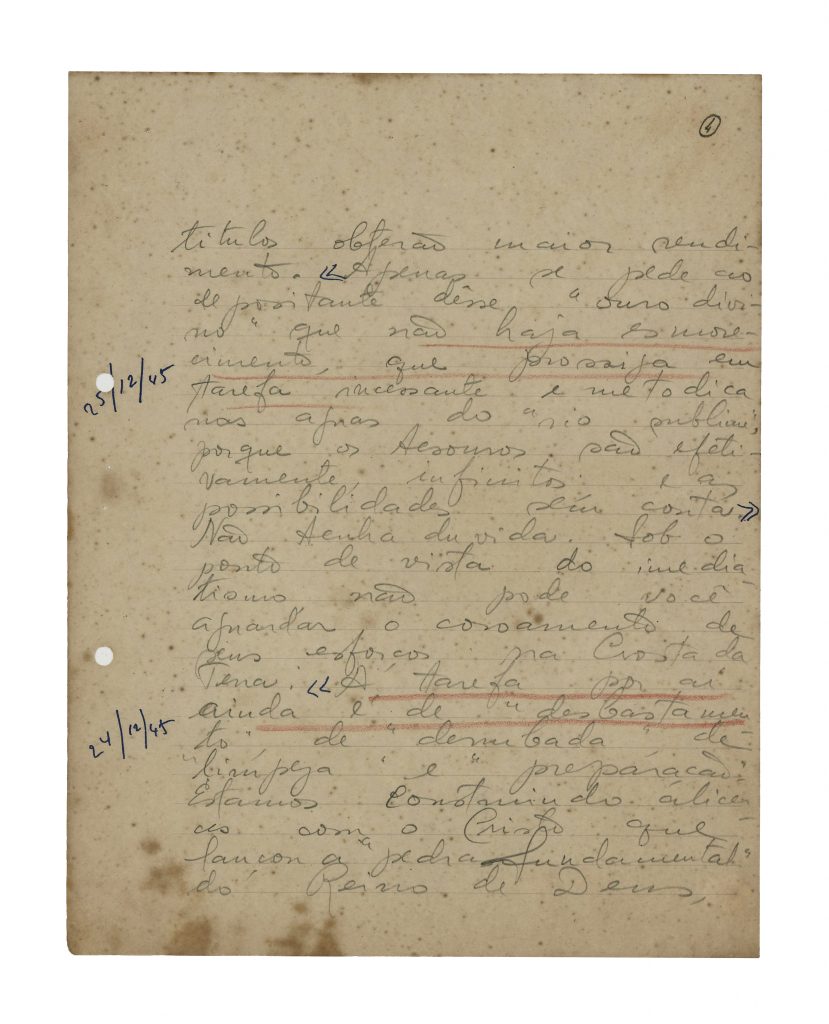 4
titulos obterão maior rendi-
mento. « Apenas se pede ao
depositante dêsse "ouro divi-
no" que não haja esmore-
cimento, que prossiga em
25/12/45
tarefa incessante e metodica
nas aguas do "rio sublime",
porque os tesouros são efeti-
vamente, infinitos e as
possibilidades sem conta. »
Não tenha duvida. Sob o
ponto de vista do imedia-
tismo não pode você
aguardar o coroamento de
seus esforços na Crosta da
Terra. « A tarefa por aí
ainda é de "desbastamen
24/12/45
to", de "derrubada" de
"limpeza" e "preparacão".
Estamos construindo alicer-
ces com o Cristo que
lançou a "pedra fundamental"
do Reino de Deus,